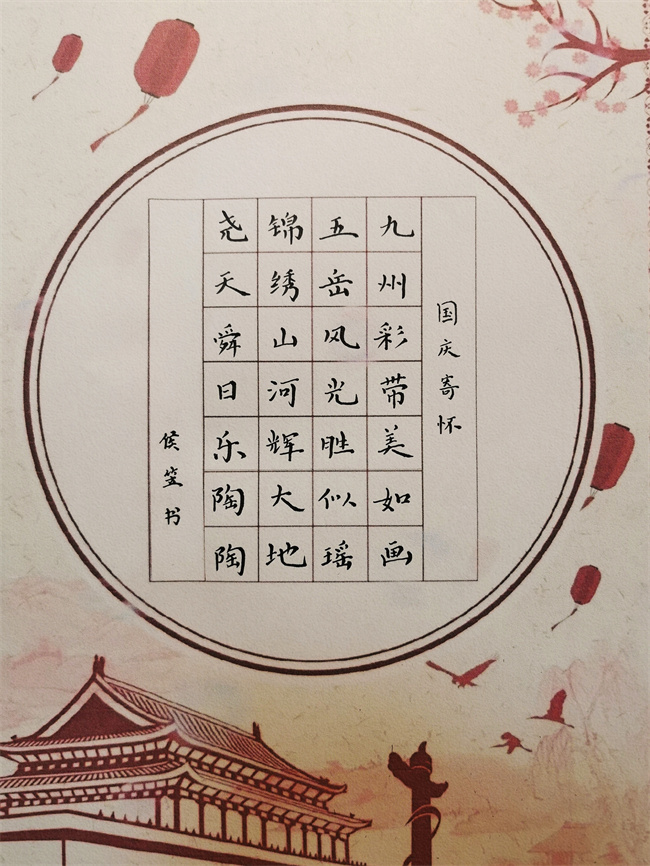 国庆寄怀
九州彩带美如画
五岳风光胜似瑶
锦绣山河辉大地
尧天舜日乐陶陶
侯笠书